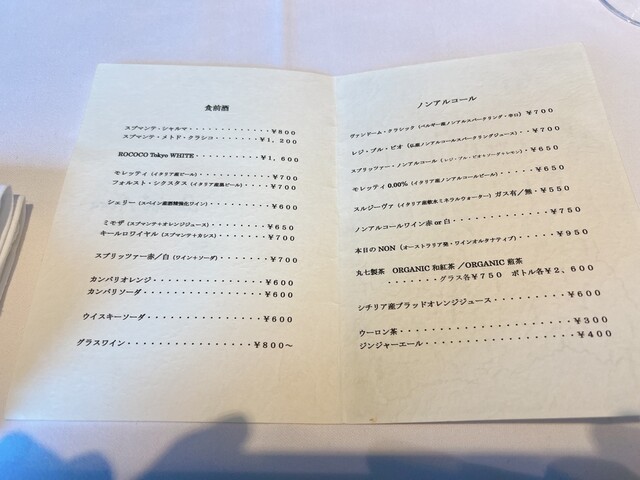 食前酒
スプマンテ・シャルマ・・・・・・・・・・・・・¥８００
スプマンテ・メトド・クラシコ・・・・・・・¥１，２００
ROCOCO Tokyo WHITE・・・・・・・・・¥１，６００
モレッティ（イタリア産ビール）・・・・・・・・・¥７００
フォルスト・シクスタス（イタリア産黒ビール）・・・・・¥７００
シェリー（スペイン産酒精強化ワイン）・・・・・・・・¥６００
ミモザ（スプマンテ+オレンジジュース）・・・・・・・¥６５０
キールロワイヤル（スプマンテ+カシス）・・・・・・¥７００
スプリッツァー赤／白（ワイン+ソーダ）・・・・・・¥７００
カンパリオレンジ・・・・・・・・・・・・・・¥６００
カンパリソーダ・・・・・・・・・・・・・・・¥６００
ウイスキーソーダ・・・・・・・・・・・・・・¥６００
グラスワイン・・・・・・・・・・・・・・・・¥８００～
ノンアルコール
ヴァンドーム・クラシック（ベルギー産ノンアルスパークリング・辛口）¥７００
レジ・ブル・ビオ（仏産ノンアルコールスパークリングジュース）・・¥７００
スプリッツァー・ノンアルコール（レジ・ブル・ビオ+ソーダ+レモン）・¥６５０
モレッティ 0.00%（イタリア産ノンアルコールビール）・・・・・¥６５０
スルジーヴァ（イタリア産軟水ミネラルウォーター）ガス有／無・¥５５０
ノンアルコールワイン赤 or 白・・・・・・・・・・・¥７５０
本日の NON（オーストラリア発・ワインオルタナティブ）・・・・・¥９５０
丸七製茶　ORGANIC 和紅茶 ／ORGANIC 煎茶
・・・・・・・・グラス各¥７５０　ボトル各¥２，６００
シチリア産ブラッドオレンジジュース・・・・・・・・¥６００
ウーロン茶・・・・・・・・・・・・・・・・・・¥３００
ジンジャーエール・・・・・・・・・・・・・・・¥４００